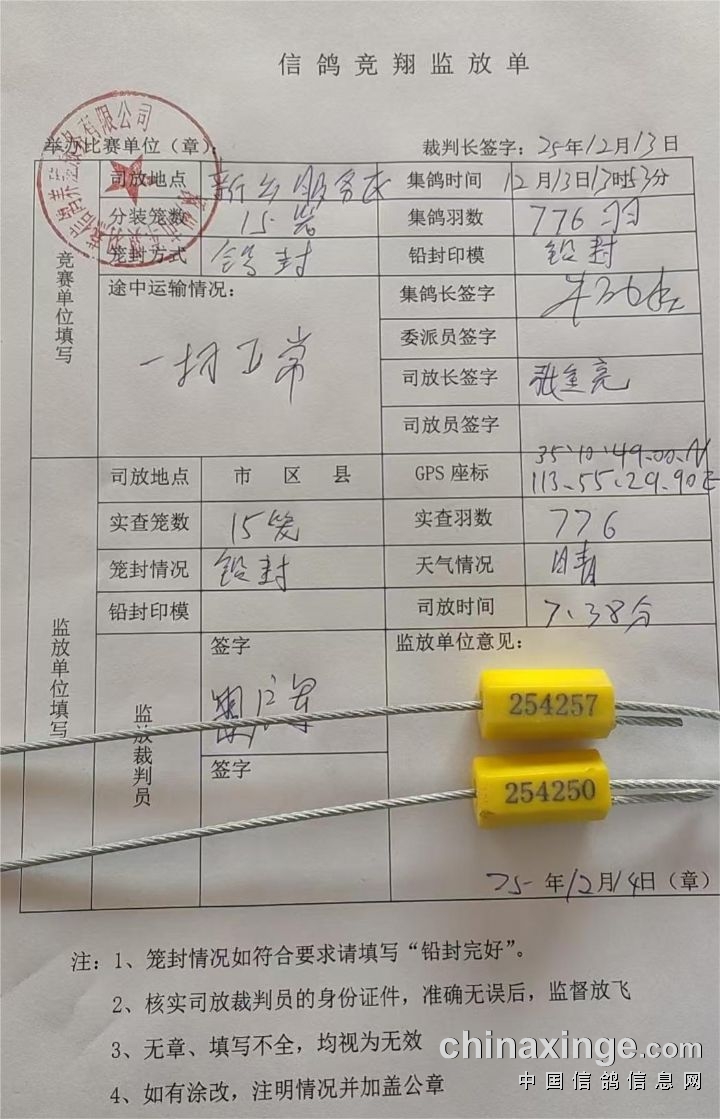 信鸽竞翔监放单
举办比赛单位（章）： 裁判长签字：25年12月13日
竞赛单位填写
司放地点 新乡服务区 集鸽时间 12月13日13时53分
分装笼数 15笼 集鸽羽数 776羽
笼封方式 铅封 铅封印模 铅封
途中运输情况： 集鸽长签字
一切正常
委派员签字
司放长签字
司放员签字
监放单位填写
司放地点 市 区 县 GPS座标 35.10.49.00.N
113.55.29.90E
实查笼数 15笼 实查羽数 776
笼封情况 铅封 天气情况 晴
铅封印模 司放时间 7.38分
监放裁判员
签字
监放单位意见：
254257
签字
254250
25年12月14日（章）
注：1、笼封情况如符合要求请填写“铅封完好”。
2、核实司放裁判员的身份证件，准确无误后，监督放飞
3、无章、填写不全，均视为无效
4、如有涂改，注明情况并加盖公章
chinaxinge.com
中国信鸽信息网